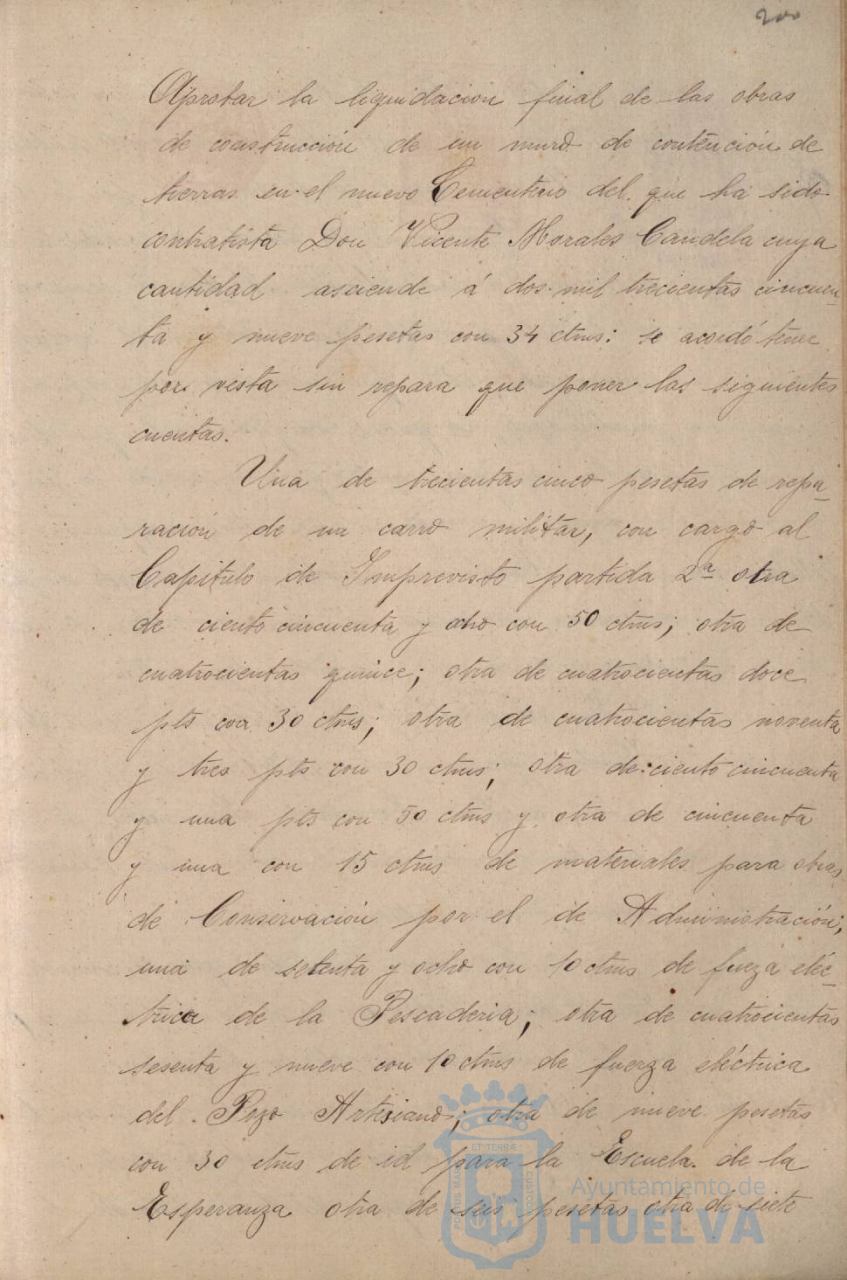 200
Aprobar la liquidacion final de las obras
de construcción de un muro de contención de
tierras en el nuevo Cementerio del que ha sido
contratista Don Vicente Morales Candela cuya
cantidad asciende á dos mil trecientas cincuen-
ta y nueve pesetas con 34 ctms: se acordó tener
por vista sin repara que poner las siguientes
cuentas.
Una de trecientas cinco pesetas de repa-
ración de un carro militar, con cargo al
Capitulo de Imprevisto partida 2ª otra
de ciento cincuenta y ocho con 50 ctms; otra de
cuatrocientas quince; otra de cuatrocientas doce
pts con 30 ctms; otra de cuatrocientas noventa
y tres pts con 30 ctms; otra de ciento cincuenta
y una pts con 50 ctms y otra de cincuenta
y una con 15 ctms de materiales para obras
de Conservación por el de Administración;
una de setenta y ocho con 10 ctms de fueza eléc-
trica de la Pescaderia; otra de cuatrocientas
sesenta y nueve con 10 ctms de fuerza eléctrica
del Pozo Artesiano; otra de nueve pesetas
con 30 ctms de id para la Escuela de la
Esperanza otra de seis pesetas otra de siete
Ayuntamiento de
HUELVA